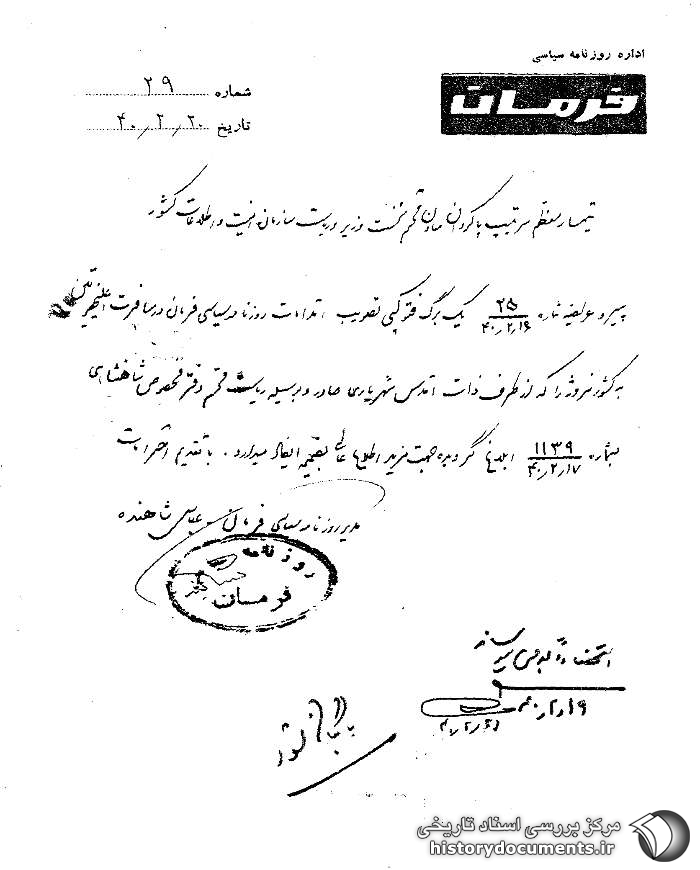 اداره روزنامه سیاسی
فرمان
شماره ۲۹
تاریخ ۴۰/۲/۲۰
تیمسار معظم سرتیپ پاکروان معاون محترم نخست وزیر و ریاست سازمان امنیت و اطلاعات کشور
پیرو عریضه شماره ۲۵ ۴۰/۲/۱۶ یک برگ فتوکپی تصویب اقدامات روزنامه سیاسی فرمان در مسافرت اعلیحضرتین
به کشور نروژ را که از طرف ذات اقدس شهریاری صادر و بوسیله ریاست محترم دفتر مخصوص شاهنشاهی
بشماره ۱۱۳۹ ۴۰/۲/۱۷ ابلاغ گردیده جهت مزید اطلاع عالی بضمیمه ایفاد میدارد. با تقدیم احترامات
مدیر روزنامه سیاسی فرمان عباس شاهنده
روزنامه
فرمان
۴۰/۲/۱۹
بایگانی شود
مرکز بررسی اسناد تاریخی
historydocuments.ir